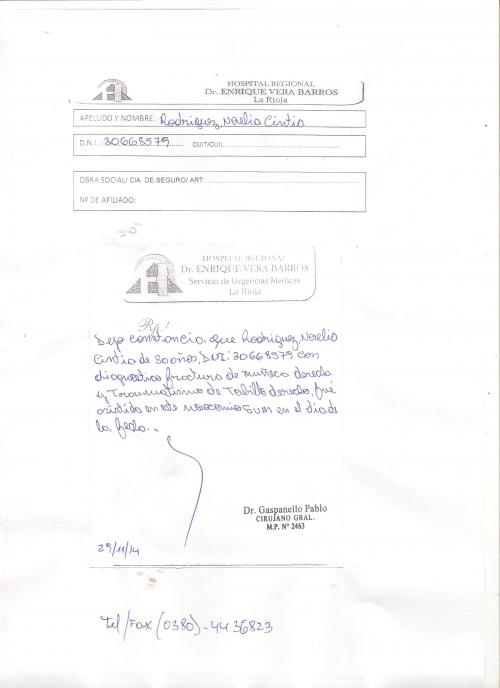 HOSPITAL REGIONAL
Dr. ENRIQUE VERA BARROS
La Rioja
APELLIDO Y NOMBRE: Rodriguez, Noelia Cintia
D.N.I.: 30668579 CUIT/CUIL:
OBRA SOCIAL/ CIA. DE SEGURO/ ART:
Nº DE AFILIADO:
HOSPITAL REGIONAL
Dr. ENRIQUE VERA BARROS
Servicio de Urgencias Medicas
La Rioja
Rp/
Dejo constancia que Rodriguez, Noelia
Cintia de 30 años, DNI: 30668979 con
diagnostico fractura de muñeca derecha
y Traumatismo de Tobillo derecho, fué
asistida en este nosocomio en el dia de
la fecha..
Dr. Gaspanello Pablo
CIRUJANO GRAL.
M.P. Nº 2463
29/11/14
Tel/Fax (0380)-4436823